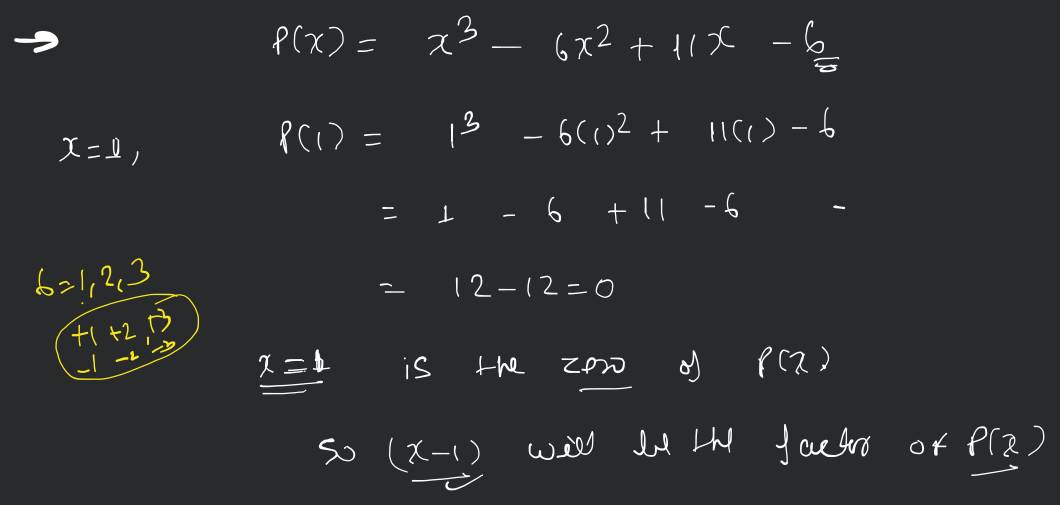 → P(x) = x³ – 6x² + 11x – 6
x=1, P(1) = 1³ – 6(1)² + 11(1) – 6
= 1 – 6 + 11 – 6 –
6=1,2,3
= 12–12=0
+1 +2, +3
–1 –2 –3
x=1 is the zero of P(x)
So (x–1) will be the factor of P(x)